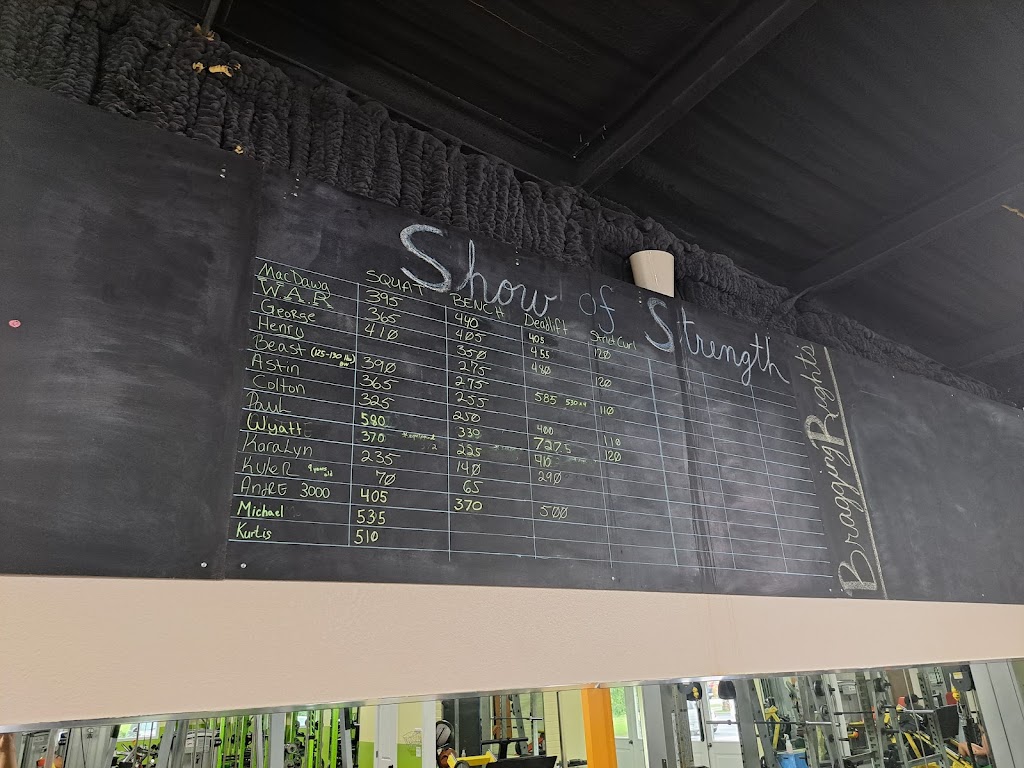 Show of Strength
SQUAT BENCH Deadlift Strict Curl
MacDawg 395 440 405 120
W.A.R 365 405 455
George 410 350 480 120
Henry 275
Beast (125-130 lbs) 390 275 585 530x4 110
Astin 365 255
Colton 325 250 400 110
Paul 580 330 727.5 120
Wyatt 370 225 90
KaraLyn 235 140 290
KyleR 9 years old 70 65
AndRE 3000 405 370 500
Michael 535
Kurtis 510
Bragging Rights